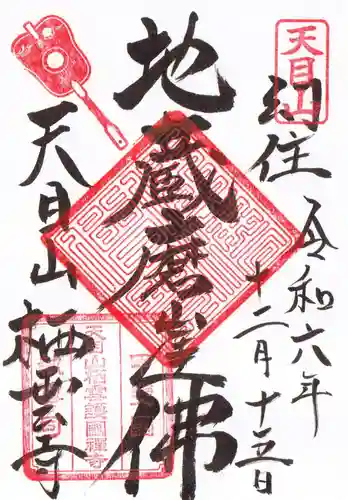 天目山
幻住
令和六年
十二月十五日
地蔵磨崖佛
天目山 栖雲寺
天目山栖雲護國禪寺